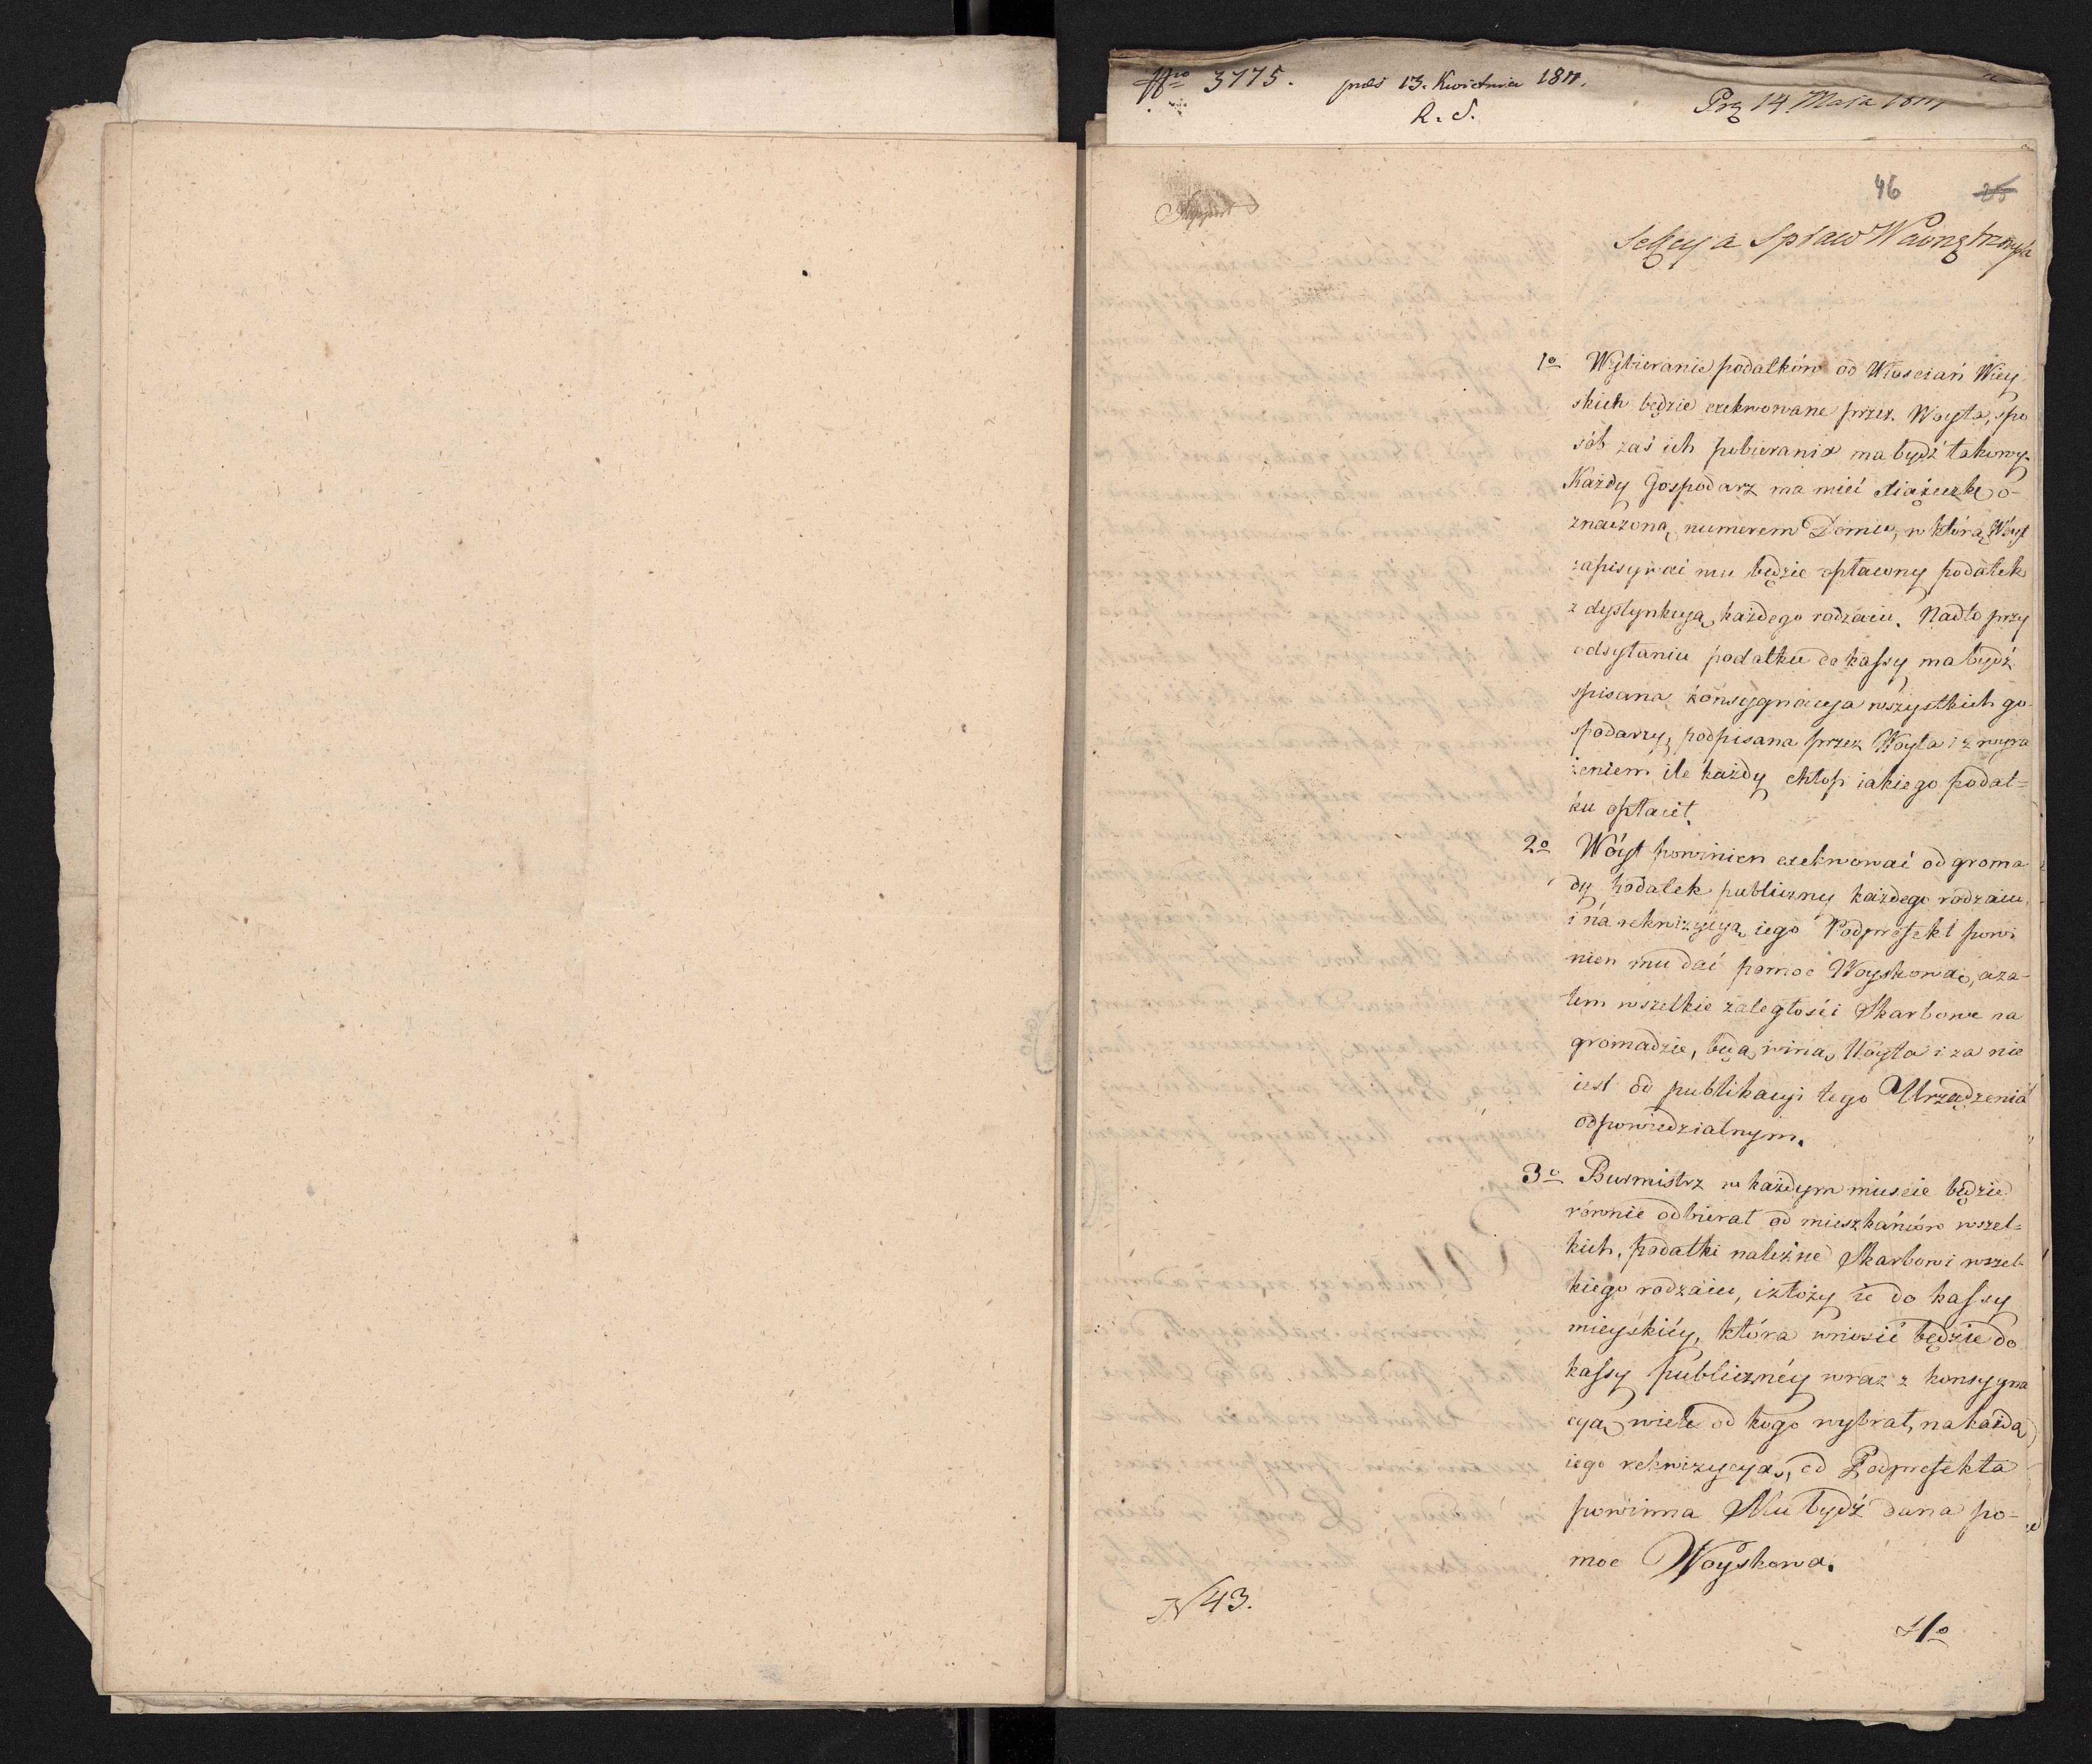 Nro 3775. prdś 13. Kwietnia 1811.
R. S.
Prz 14 Maja 1811
46 25
Sekcya Spraw Wewnętrznych
1o Wybieranie podatków od Włościan Wiey
skich będzie exekwowane przez Woyta, spo
sób zaś ich pobierania ma bydź takowy.
Każdy Gospodarz ma mieć Xiążeczkę o-
znaczoną numerem Domu, w którą Wóyt
zapisywać mu będzie opłacony podatek
z dystynkcyą każdego rodzaiu. Nadto przy
odsyłaniu podatku do kassy ma bydź
spisana konsygnacya wszystkich go-
spodarzy, podpisana przez Woyta i z wyra
żeniem ile każdy chłop iakiego podat=
ku opłacił.
2o Wóyt powinien exekwować od groma
dy podatek publiczny każdego rodzaiu,
i na rekwizycyą iego Podprefekt powi
nien mu dać pomoc Woyskową, a za-
tem wszelkie zaległości Skarbowe na
gromadzie, będą winą Wóyta i za nie
iest od publikacyi tego Urządzenia
odpowiedzialnym.
3o Burmistrz w każdym mieście będzie
równie odbierał od mieszkańców wszel=
kich, podatki należne Skarbowi wszel-
kiego rodzaiu, i złoży ie do kassy
mieyskiéy, która wnosić będzie do
kassy publicznéy wraz z konsygna
cyą wiele od kogo wybrał, na każdą
iego rekwizycyą, od Podprefekta
powinna Mu bydź dana po-
moc Woyskowa.
N 43.
4o